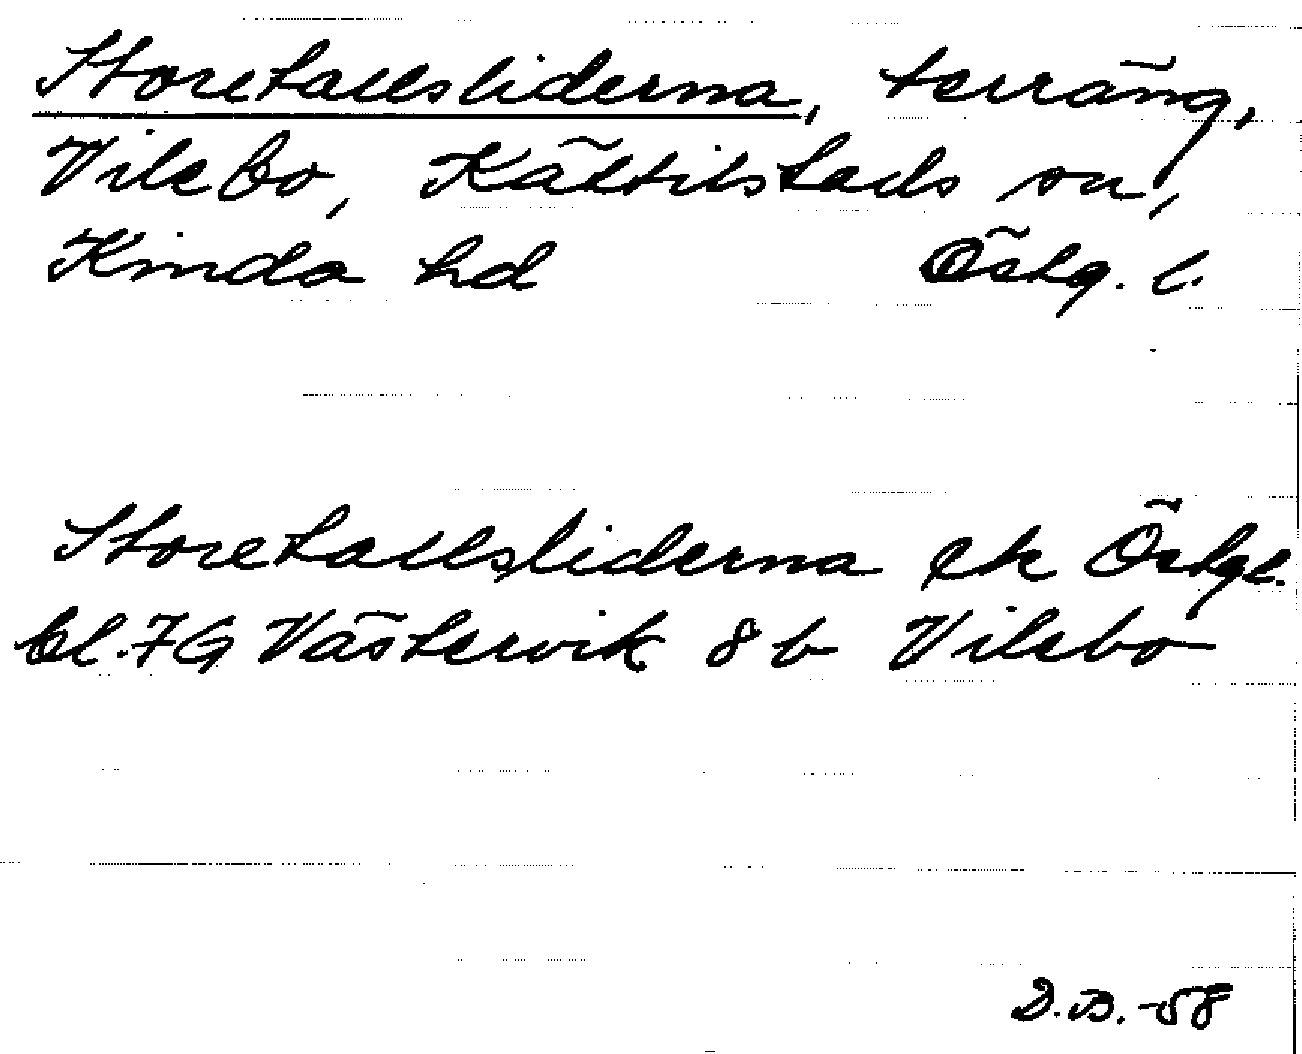 Storetallsliderna, terräng,
Vilebo, Kättilstads sn,
Kinda hd Östg. l.
Storetallsliderna ek Östgl.
bl. 7G Västervik 8 b Vilebo
D.B. -58